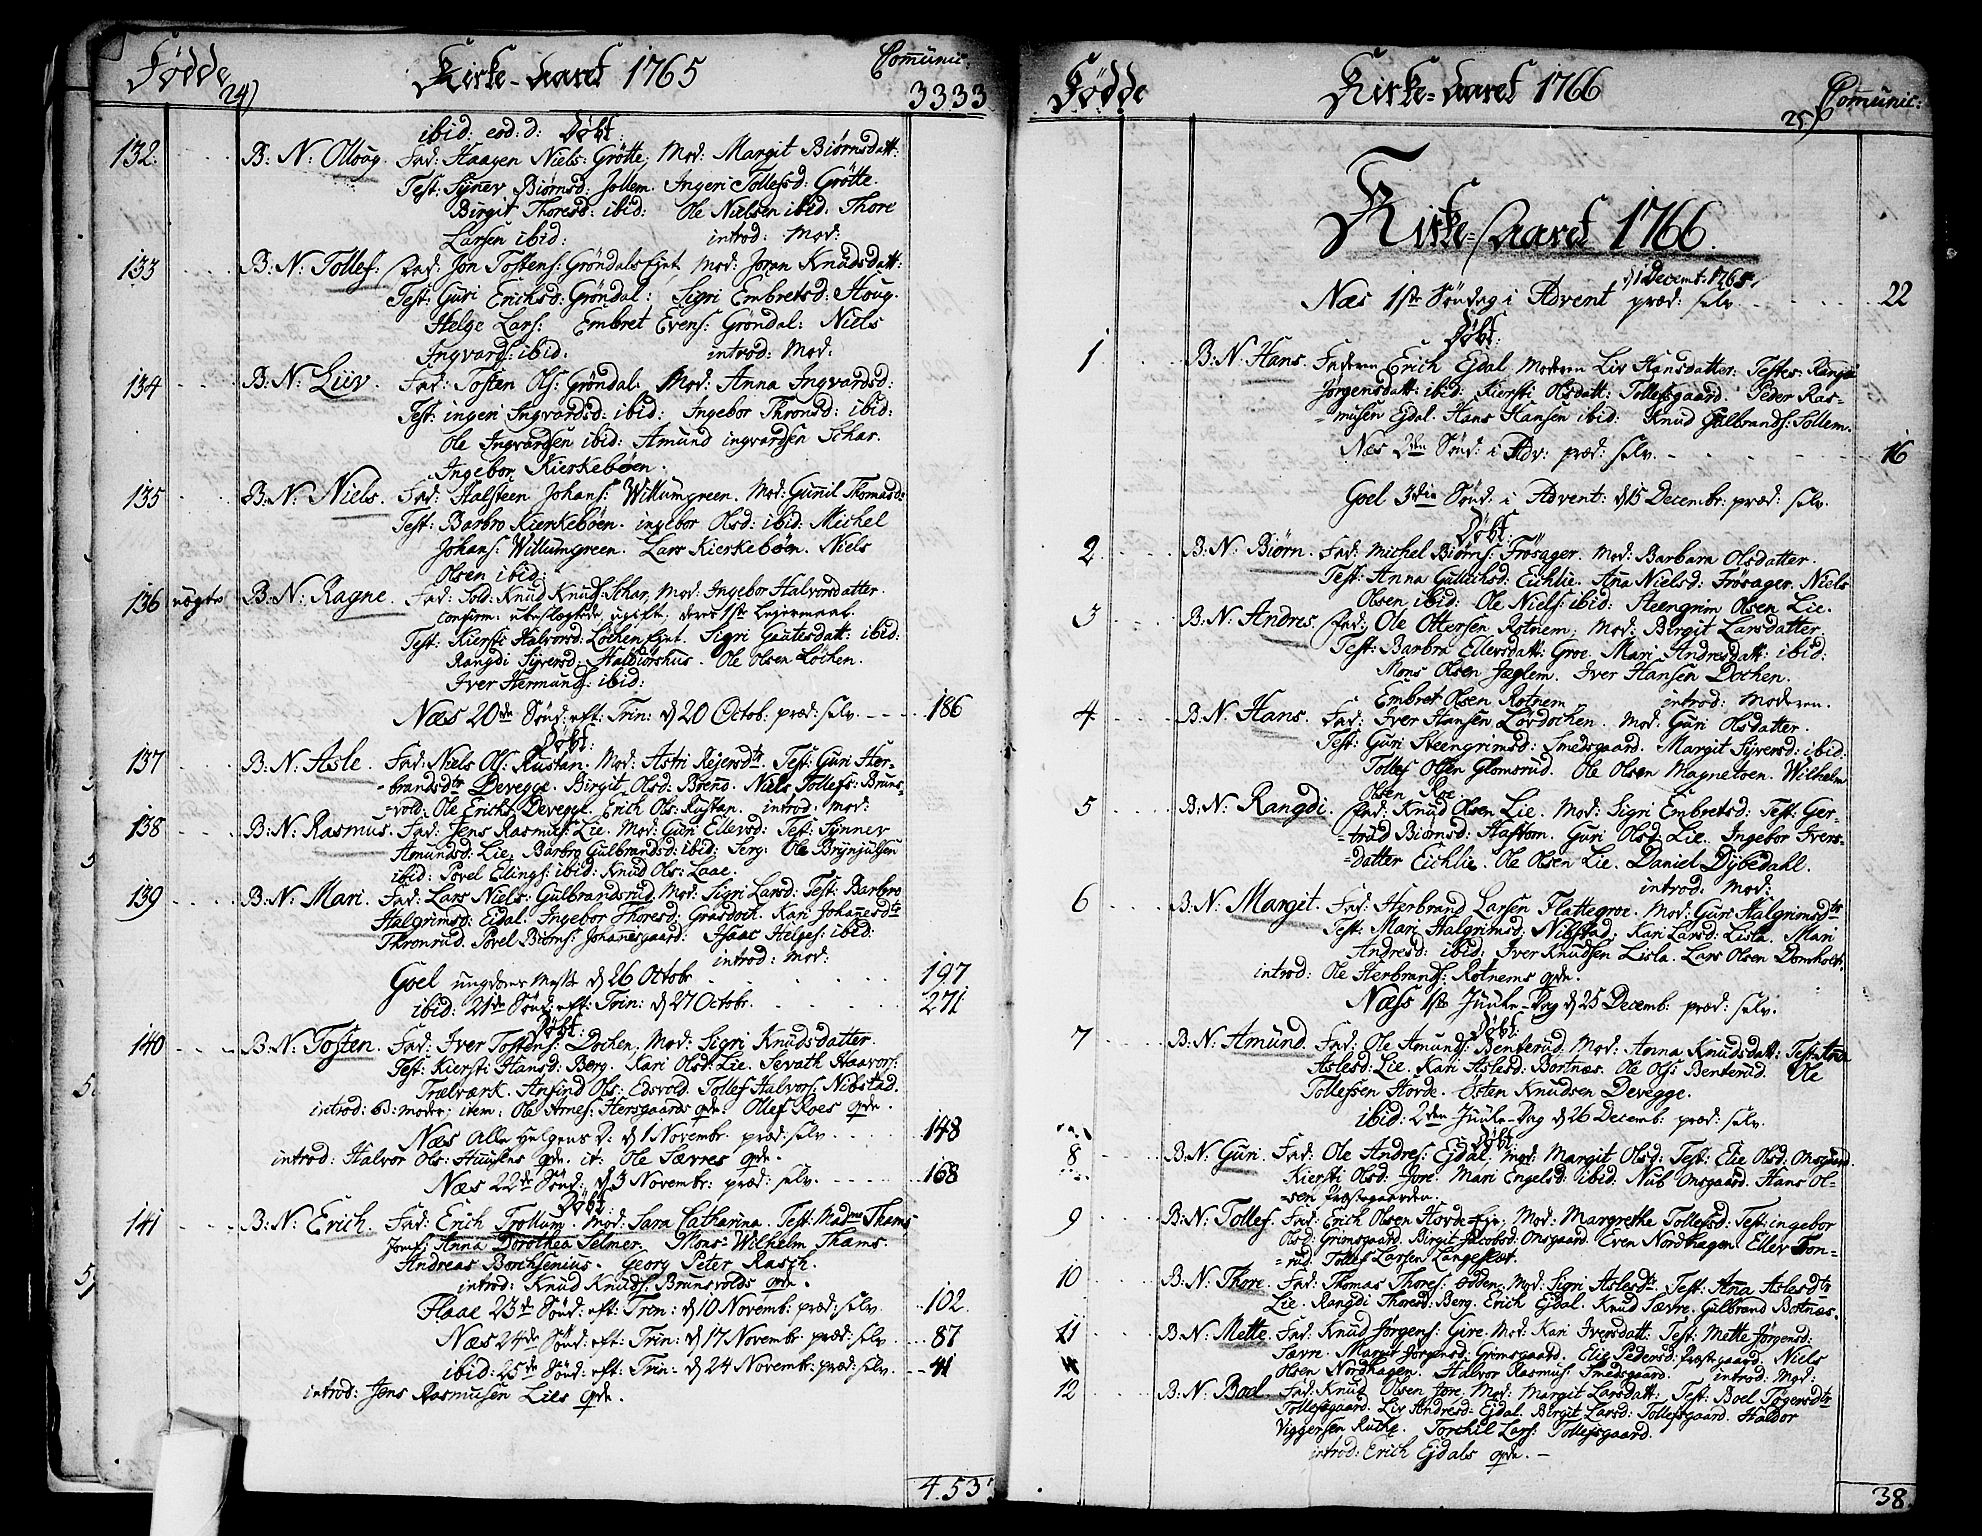 Fødde
24)
Kirke-Aaret 1765
Comunic:
3333
ibid: eod: d: Døbt:
132. B: N: Olloug. Fad: Haagen Niels: Grøtte, Mod: Margit Biørnsdatt:
Test: Syner Biørnsd: Jollem. Ingeri Tollefsd: Grøtte.
Birgit Thoresd: ibid: Ole Nielsen ibid: Thore
Larsen ibid: introd: Mod:
133 B: N: Tollef: Fad: Jon Tostens: Grøndalsejet, Mod: Joran Knudsdatt:
Test: Guri Erichsd: Grøndal: Sigri Embretsd: Houg.
Helge Lars: Embret Evens: Grøndal: Niels
Ingvards: ibid. introd: Mod:
134 B: N: Liiv. Fad: Tosten Ols: Grøndal. Mod: Anna Ingvardsd:
Test: ingeri Ingvardsd: ibid: Ingebor Thronsd: ibid:
Ole Ingvardsen ibid: Amund ingvardsen Schar.
Ingebor Kierkebøen.
135 B: N: Niels. Fad: Halsteen Johans: Willumgreen. Mod: Gunil Thomasd:
Test: Barbro Kierkebøen. ingebor Olsd: ibid: Michel
Johans: Willumgreen. Lars Kierkebøen. Niels
Olsen ibid:
136 uægte B: N: Ragne. Fad: Sold: Knud Knuds: Schar, Mod: Ingebor Halvorsdatter.
confirm: ubeslægtede, ugift, deres 1ste Leiermaal.
Test: Kiersti Halvorsd: Løchen ejet. Sigri Gautesdatt: ibid:
Rangdi Syversd: Haldiorshus. Ole Olsen Løchen.
Iver Hermunds: ibid:
Næs 20de Sønd: eft: Trin: d 20 Octob: præd: selv. 186
Døbt:
137 B: N: Asle. Fad: Niels Ols: Rustan. Mod: Astri Rejersdtr. Test: Guri Her-
brandsdtr Devegge. Birgit Olsd: Brend. Niels Tollefs: Bruns-
vold. Ole Erichs: Devegge. Erich Ols: Rustan. introd: Mod:
138 B: N: Rasmus. Fad: Jens Rasmus: Lie. Mod: Guri Ellevsd: Test: Synnev
Amundsd: Lie. Barbro Gulbrandsd: ibid: Serg: Ole Brynjulsen
ibid: Povel Elings: ibid: Knud Ols: Laae.
139 B: N: Mari. Fad: Lars Niels: Gulbrandsrud. Mod: Sigri Larsd: Test: Barbro
Halgrimsd: Eidal. Ingebor Thoresd: Grasdoch. Kari Johannesdtr
Thronrud. Povel Biørns: Johannesgaard: Isaac Helges: ibid:
introd: Mod:
Goel ungdoms Møde d 26 Octobr. 197
ibid: 21de Sønd: eft: Trin: d 27 Octobr. 271
Døbt:
140 B: N: Tosten. Fad: Iver Tostens: Dochen. Mod: Sigri Knudsdatter.
Test: Kiersti Hansd: Berg. Kari Olsd: Lie. Sevath Haavors:
Trælværk. Arfind Ols: Edsvold. Tollef Halvors: Nibstad.
introd: B: moder; item: Ole Arnes: Hersgaards qde. Ollef Roes qde.
Næs Alle Helgens D: d 1 Novembr. præd: selv 148
introd: Halvor Ols: Huusens qde. it: Ole Tærres qde.
Næs 22de Sønd: d 3 Novembr: præd: selv. 168
Døbt
141 B: N: Erich. Fad: Erich Trollum. Mod: Sara Catharina. Test: Madme Thams
Jomf: Anna Dorothea Selmer. Mons: Wilhelm Thams.
Andreas Borchsenius. Georg Peter Rasch.
introd: Knud Knuds: Brunsvolds qde.
Flaae 23de Sønd: eft: Trin: d 10 Novemb: præd: selv. 102.
Næs 24de Sønd: eft: Trin: d 17 Novemb: præd: selv 87
ibid: 25de Sønd: eft: Trin: d 24 Novemb: præd: selv. 41
introd: Jens Rasmusen Lies qde.
4.53
Fødde
Kirke-Aaret 1766
25)
Comunic:
Kirke-Aaret 1766.
d 1 Decemb: 1765
Næs 1ste Søndag i Advent præd: selv. 22
Døbt:
1 B: N: Hans. Faderen Erich Ejdal Moderen Liv Hansdatter. Testes: Rangdi
Jørgensdatt: ibid: Kiersti Olsdatt: Tollefsgaard. Peder Ras-
musen Ejdal. Hans Hansen ibid: Knud Gulbrands: Sollem.
Næs 2den Sønd: i Adv: præd: selv. 16
Goel 3die Sønd: i Advent: d 15 Decembr: præd: selv.
Døbt:
2 B: N: Biørn. Fad: Michel Biørns: Frøsager. Mod: Barbara Olsdatter.
Test: Anna Gulichsd: Eichlie. Ana Nielsd: Frøsager. Niels
Olsen ibid: Ole Niels: ibid: Steengrim Olsen Lie.
3 B: N: Andres. Fad: Ole Ottersen Rotnem, Mod: Birgit Larsdatter
Test: Barbra Ellevsdatt: Groe. Mari Andresdatt: ibid:
Mons Olsen Jæglem. Iver Hansen Dochen.
Embret Olsen Rotnem introd: Moderen.
4 B: N: Hans. Fad: Iver Hansen Lovdochen. Mod: Guri Olsdatter.
Test: Guri Steengrimsd: Smedsgaard. Margit Syversd: ibid:
Tollef Olsen Glomsrud. Ole Olsen Magnetoen. Wilhelm
Olsen Roe
5 B: N: Rangdi. Fad: Knud Olsen Lie. Mod: Sigri Embretsd: Test: Ger-
trud Biørnsd: Haftorn. Guri Olsd: Lie. Ingebor Ivers-
datter Eichlie. Ole Olsen Lie. Daniel Dybedahl.
introd: Mod:
6 B: N: Margit. Fad: Herbrand Larsen Flattegroe. Mod: Guri Halgrimsdtr
Test: Mari Halgrimsd: Nibstad. Kari Larsd: Lisla. Mari
Andresd: ibid: Iver Knudsen Lisla. Lars Olsen Domholt.
introd: Ole Herbrands: Rotnems qde.
Næss 1ste Juule-Dag d 25 Decemb: præd: selv.
Døbt:
7 B: N: Amund. Fad: Ole Amunds: Benterud. Mod: Anna Knudsdatt: Test: Ana
Aslesd: Lie. Kari Aslesd: Bortnæs. Ole Ols: Benterud. Ole
Tollefsen Horde. Østen Knudsen Devegge.
ibid: 2den Juule-Dag d 26 Decemb: præd: selv.
Døbt:
8 B: N: Guri. Fad: Ole Andres: Ejdal. Mod: Margit Olsd: Test: Elie Olsd: Onsgard.
Kiersti Olsd: Jore. Mari Engelsd: ibid: Nub Onsgaard. Hans Ol-
sen Præstegaarden.
9 B: N: Tollef. Fad: Erich Olsen Horde Eje, Mod: Margrethe Tollefsd: Test: ingebor
Olsd: Grimsgaard. Birgit Jacobsd: Onsgaard. Even Nordhagen. Ellev Ton-
rud. Tollef Larsen Langeslæt.
10 B: N: Thore. Fad: Thomas Thores: Odden, Mod: Sigri Aslesdtr. Test: Ana Aslesdtr
Lie. Rangdi Thoresd: Berg. Erich Ejdal. Knud Sævre. Gulbrand Botnæs.
11 B: N: Mette. Fad: Knud Jørgens: Gire. Mod: Kari Iversdatt: Test: Mette Jørgensd:
Sævre. Margit Jørgensd: Grimsgaard. Elie Pedersd: Præstgaard. Niels
Olsen Nordhagen. Halvor Rasmus: Smedsgaard. introd: Mod:
12 B: N: Boel. Fad: Knud Olsen Jore. Mod: Margit Larsdatt: Test: Boel Tøgersdtr
Tollefsgaard. Liv Andresd: Ejdal. Birgit Larsd: Tollefsgaard. Haldor
Viggersen Ruche. Torchil Lars: Tollefsgaard.
introd: Erich Ejdals qde.
38.